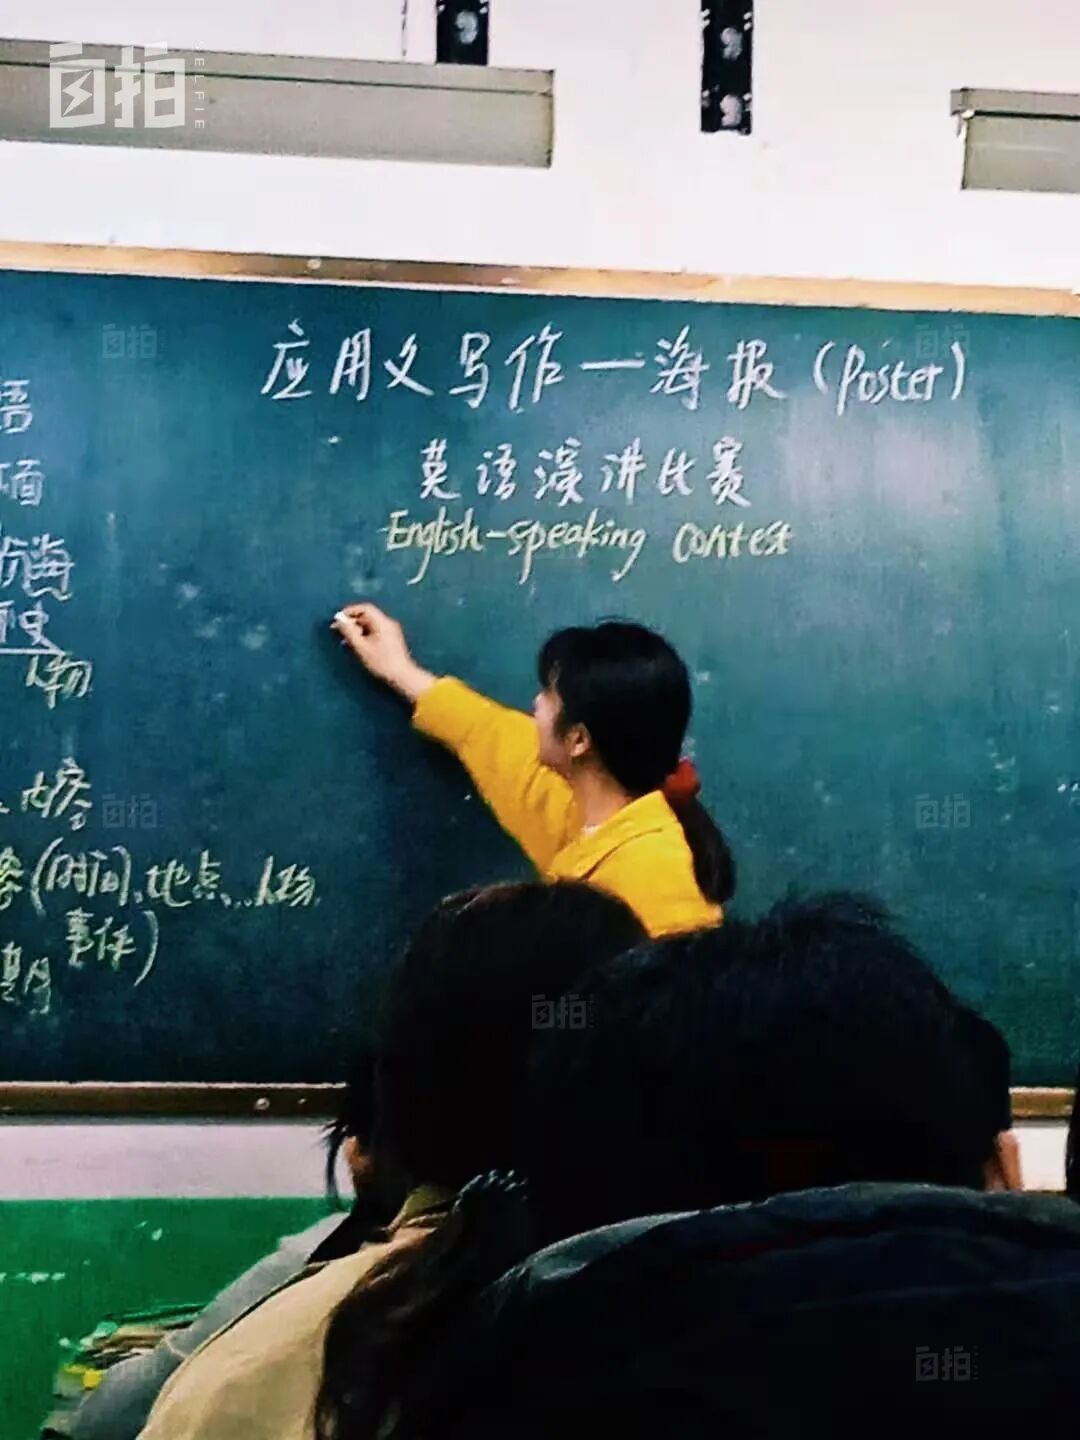 自拍
SELFIE
应用文写作一海报(Poster)
英语演讲比赛
English-speaking contest
语
项
航海
历史
人物
内容
(时间、地点、人物
事件)
期